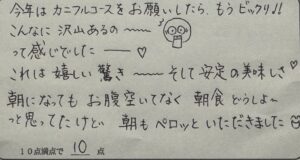 今年は カニフルコースを お願いしたら、もう ビックリ!!
こんなに 沢山あるの〜〜
って感じでした ――♡
これは 嬉しい 驚き 〜〜 そして 安定の 美味しさ
朝になっても お腹空いてなく 朝食 どうしよ〜
っと思ってたけど、 朝も ペロッと いただきました
10点満点で 10 点